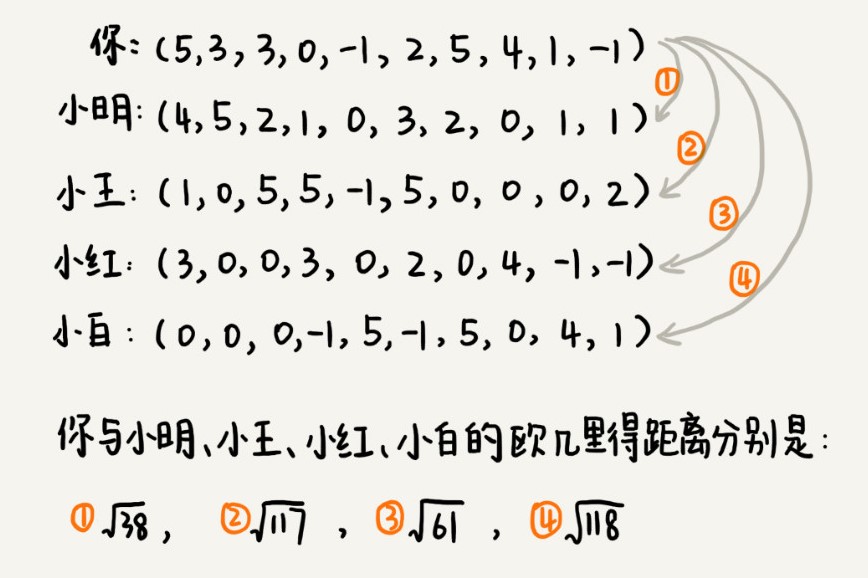 你：(5,3,3,0,-1,2,5,4,1,-1)
①
小明：(4,5,2,1,0,3,2,0,1,1)
②
小王：(1,0,5,5,-1,5,0,0,0,2)
③
小红：(3,0,0,3,0,2,0,4,-1,-1)
④
小白：(0,0,0,-1,5,-1,5,0,4,1)
你与小明、小王、小红、小白的欧几里得距离分别是：
①√38，②√117，③√61，④√118